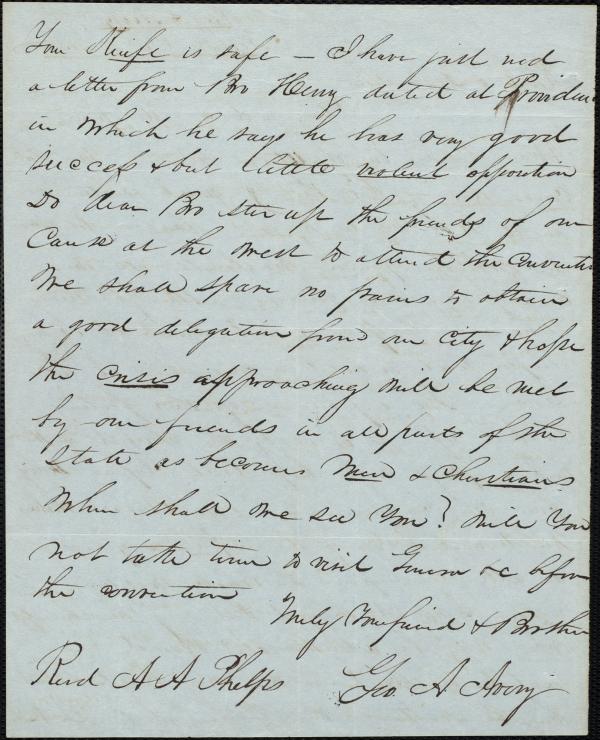 Your Knife is safe — I have just recd
a letter from Bro Henry dated at Providen
in which he says he has very good
success & but little violent opposition
Do dear Bro stir up the friends of our
Cause at the west to attend the Convention
We shall spare no pains to obtain
a good delegation from our city & hope
the crisis approaching will be met
by our friends in all parts of the
State as becomes Men & Christians
When shall we see You? Will You
not take time to visit Geneva &c before
the convention
Truly Your friend & Brother
Revd A A Phelps Geo. A Avery